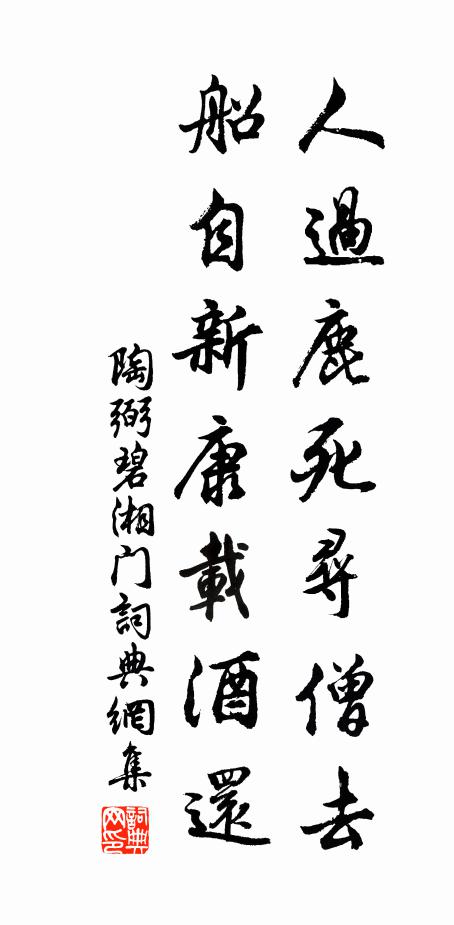 人過鹿死尋僧去
船自新康載酒還
陶弼碧湘门詞典網集
詞典网印